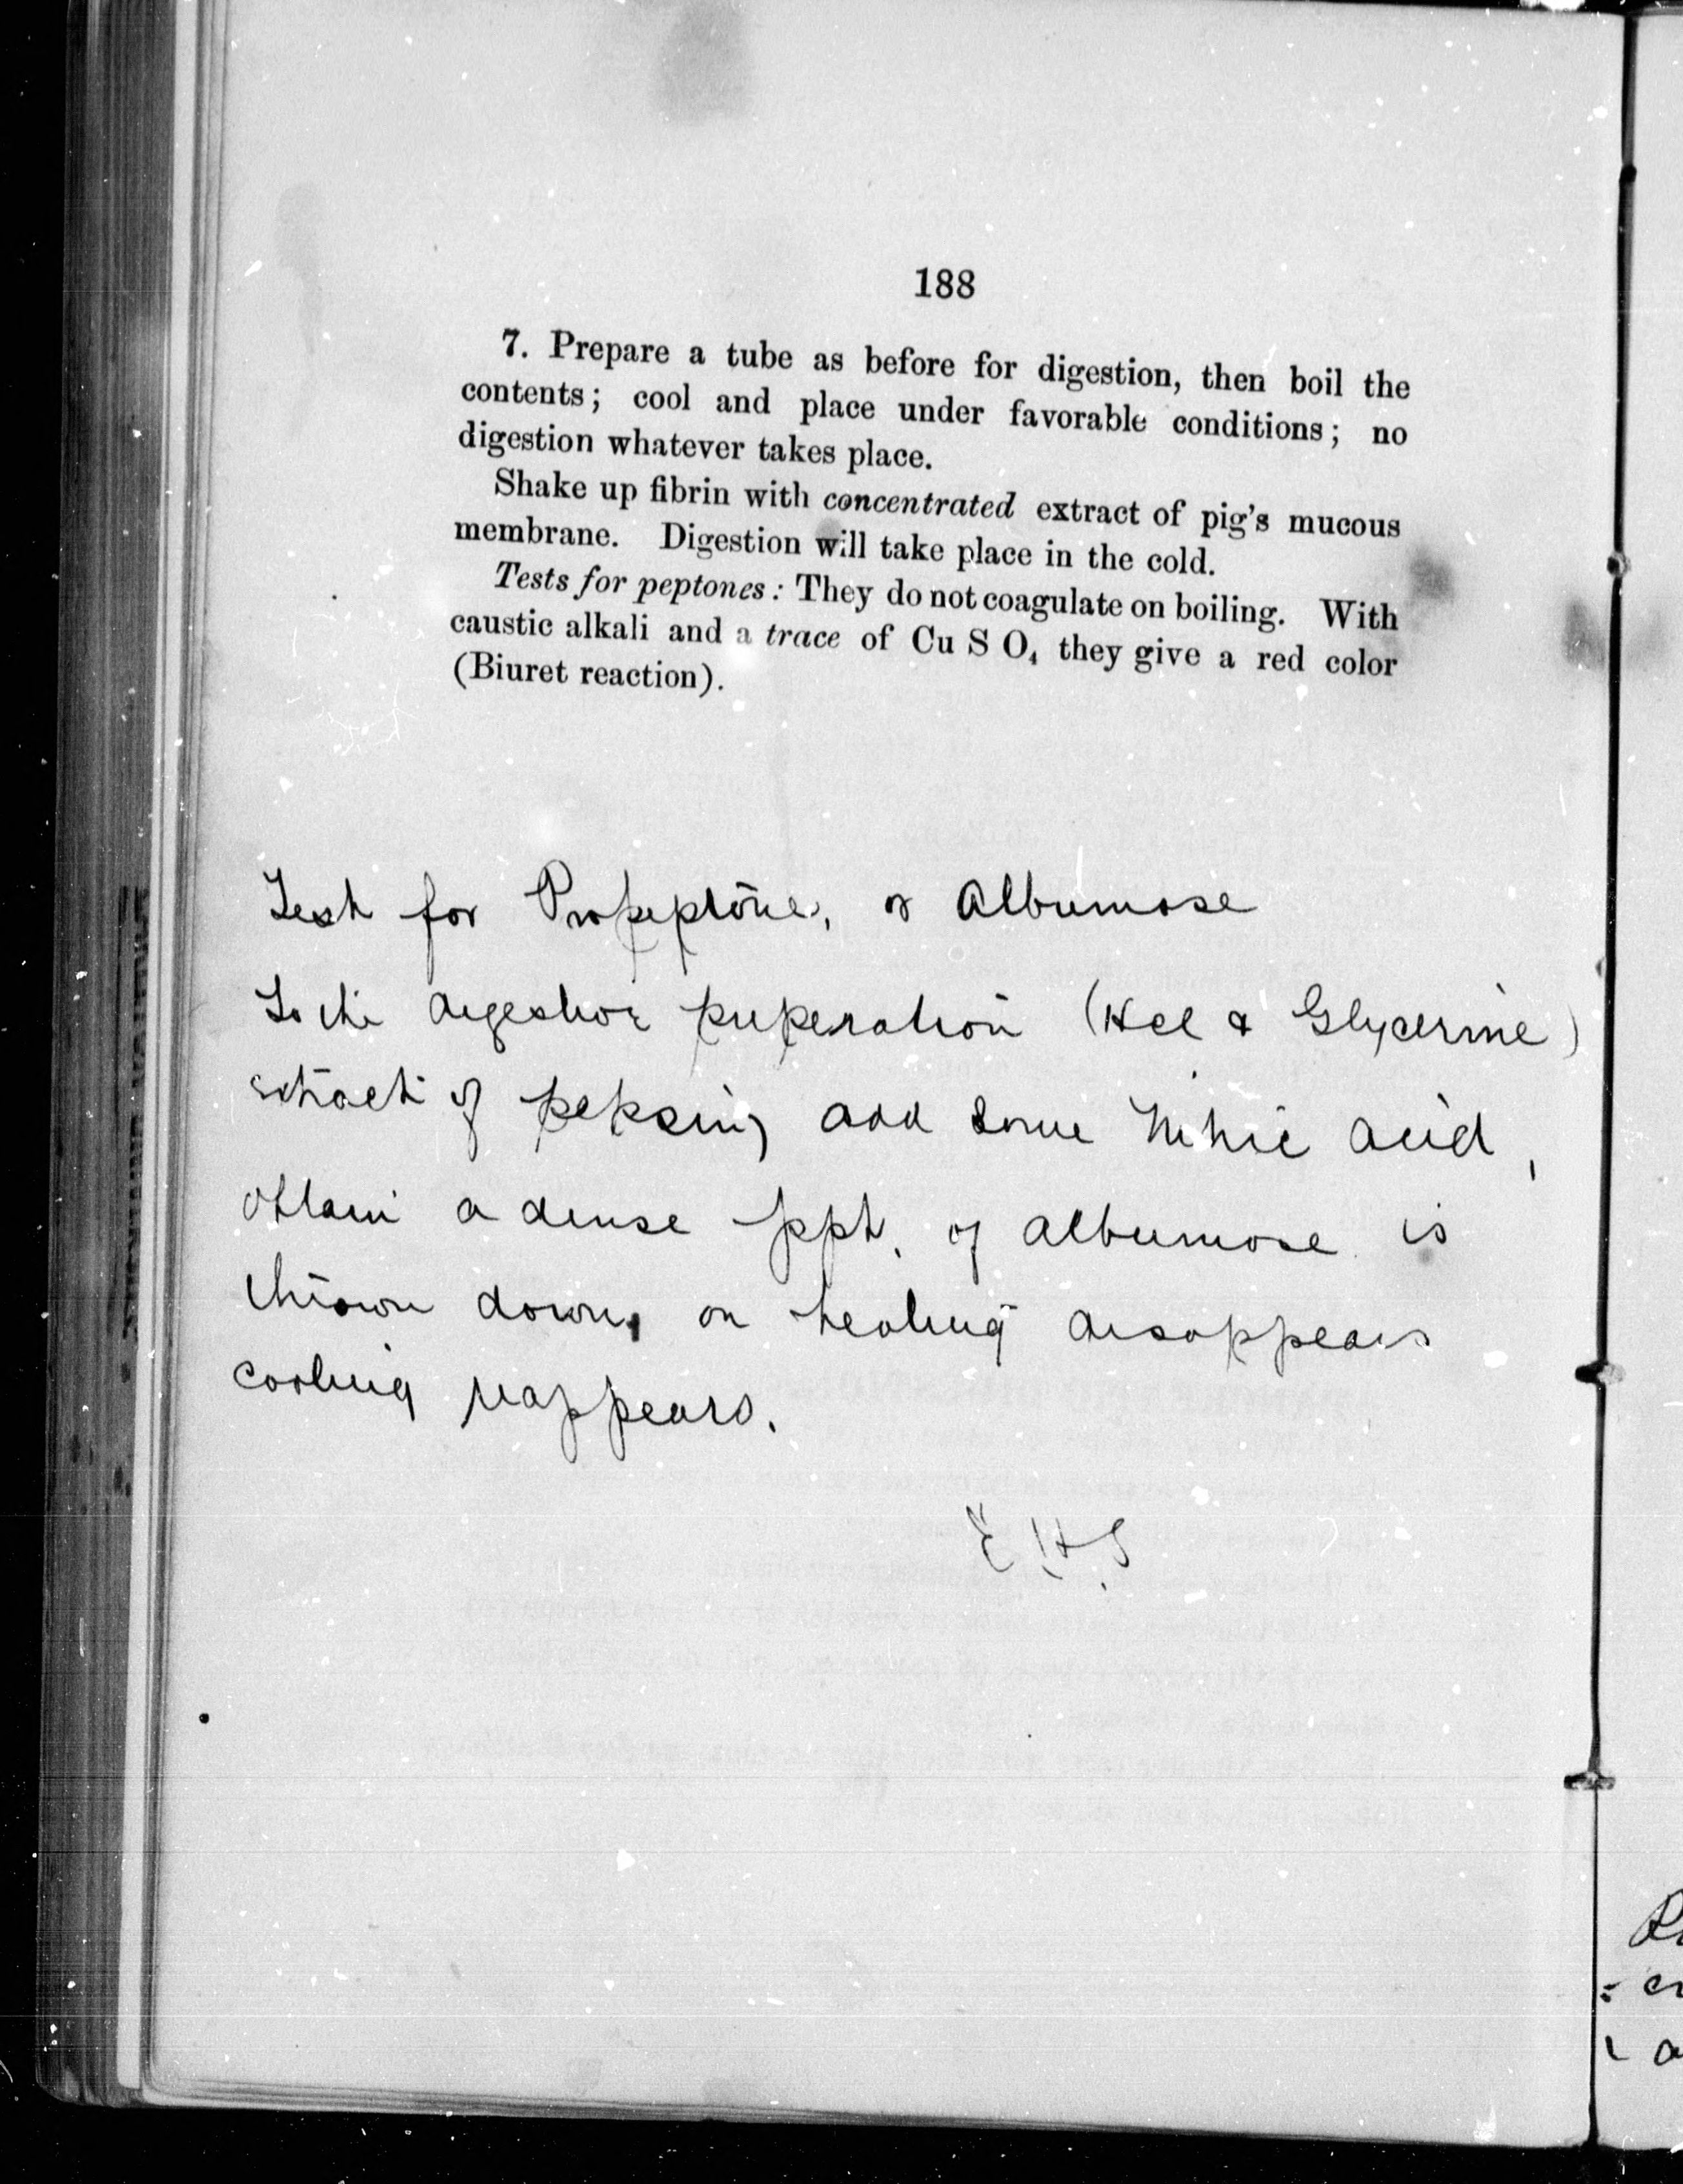 188
7. Prepare a tube as before for digestion, then boil the
contents; cool and place under favorable conditions; no
digestion whatever takes place.
Shake up fibrin with concentrated extract of pig's mucous
membrane. Digestion will take place in the cold.
Tests for peptones: They do not coagulate on boiling. With
caustic alkali and a trace of Cu S O₄ they give a red color
(Biuret reaction).
Test for Propeptone, or Albumose
To the digestion preperation (Hcl & Glycerine)
extract of pepsin) add some Nitric acid,
obtain a dense ppt. of albumose is
thrown down, on heating disappears
cooling reappears.
E.H.S